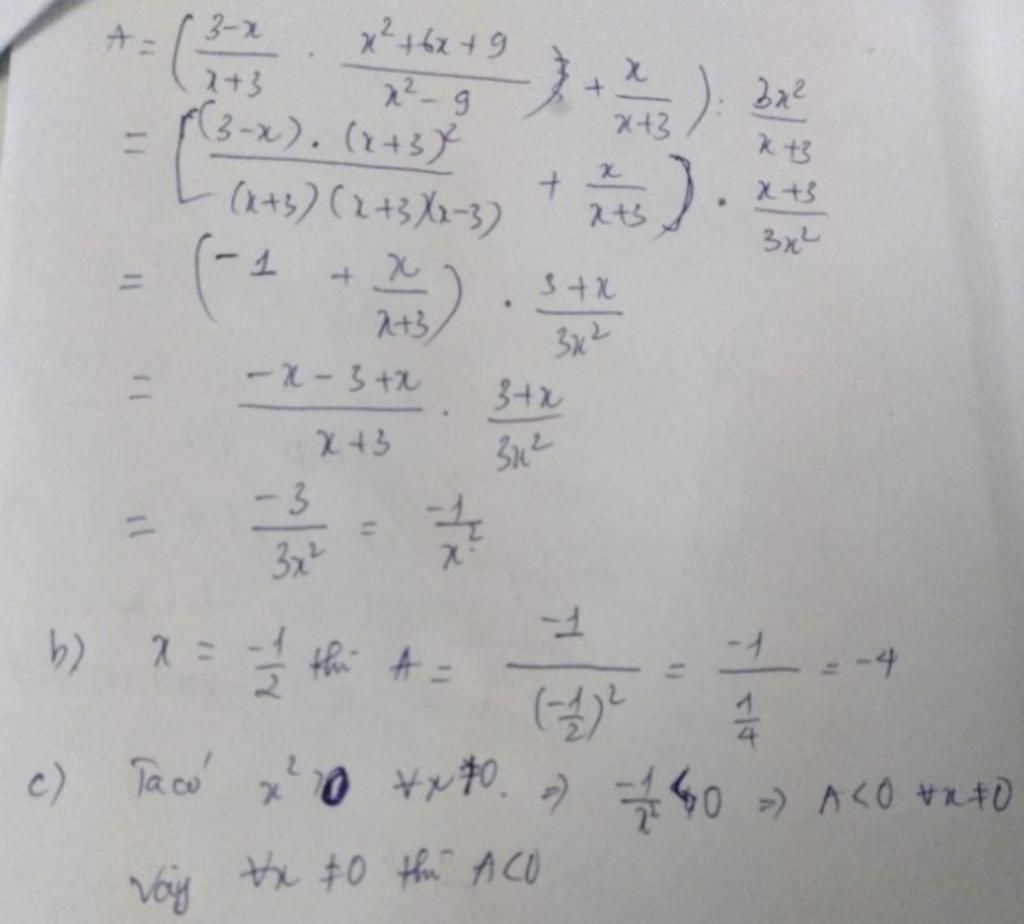 A = ( (3-x)/(x+3) . (x²+6x+9)/(x²-9) + x/(x+3) ) : 3x²/(x+3)
= [ (3-x).(x+3)² / (x+3)(x+3)(x-3) + x/(x+3) ] . (x+3)/3x²
= ( -1 + x/(x+3) ) . (3+x)/3x²
= (-x-3+x)/(x+3) . (3+x)/3x²
= -3/3x² = -1/x²
b) x = -1/2 thì A = -1/(-1/2)² = -1/(1/4) = -4
c) Ta có x² > 0 ∀x ≠ 0. => -1/x² < 0 => A < 0 ∀x ≠ 0
Vậy ∀x ≠ 0 thì A < 0